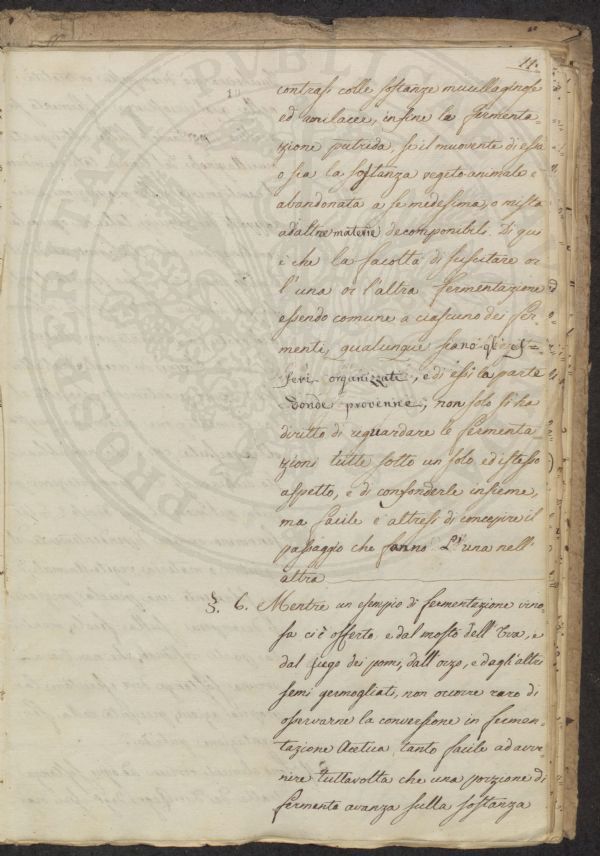 11.
contrasi colle sostanze mucillaginose
ed amilacee, infine la fermenta-
zione putrida, se il muovente di essa
o sia la sostanza vegeto-animale è
abandonata a se medesima, o mista
ad altre materie decomponibili. Di qui
è che la facoltà di suscitare or
l'una or l'altra fermentazione
essendo comune a ciascuno dei fer-
menti, qualunque siano gli es=
seri organizzati, e di essi la parte
donde provenne, non solo si ha
diritto di riguardare le fermenta
zioni tutte sotto un solo, ed istesso
aspetto, e di confonderle insieme,
ma facile è altresì di concepire il
passaggio che fanno L'una nell'
altra
§. 6. Mentre un esempio di fermentazione vino-
sa ci è offerto, e dal mosto dell'Uva, e
dal sugo dei pomi, dall'orzo, e dagli altri
semi germogliati, non ocorre raro di
osservarne la conversione in fermen-
tazione Acetica, tanto facile ad avve
nire tuttavolta che una porzione di
fermento avanza sulla sostanza
PROSPERITATI PUBLICAE